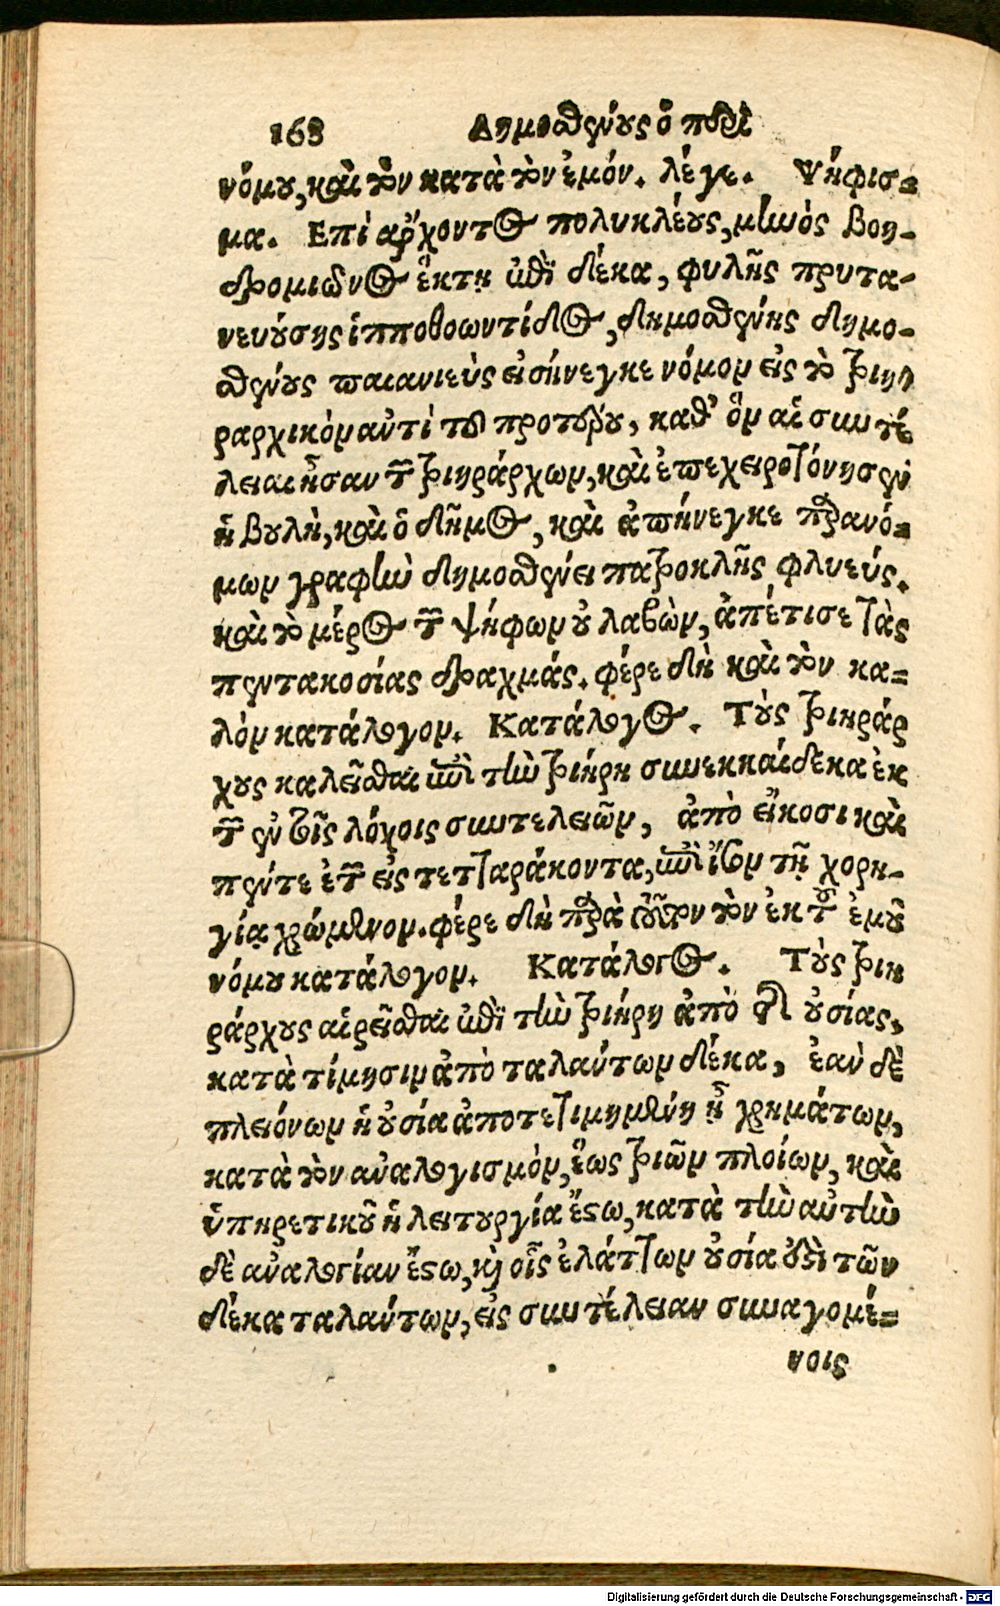 168 Δημοσθένους ὁ περὶ
νόμου, καὶ τὸν κατὰ τὸν ἐμόν. λέγε. Ψήφισ-
μα. Επὶ ἄρχοντος πολυκλέους, μηνὸς βοη-
δρομιῶνος ἕκτῃ ἐπὶ δέκα, φυλῆς πρυτα-
νευούσης ἱπποθοωντίδος, δημοσθένης δημο-
σθένους παιανιεὺς εἰσήνεγκε νόμον εἰς τὸ τριη
ραρχικὸν ἀντὶ τοῦ προτέρου, καθ' ὃν αἱ συντέ
λειαι ἦσαν τῶν τριηράρχων, καὶ ἐπεχειροτόνησεν
ἡ βουλὴ, καὶ ὁ δῆμος, καὶ ἀπήνεγκε παρανό-
μων γραφὴν δημοσθένει πατροκλῆς φλυεύς.
καὶ τὸ μέρος τῶν ψήφων οὐ λαβὼν, ἀπέτισε τὰς
πεντακοσίας δραχμάς. φέρε δὴ καὶ τὸν κα-
λὸν κατάλογον. Κατάλογος. Τοὺς τριηράρ
χους καλεῖσθαι ἐπὶ τὴν τριήρη συνεκκαίδεκα ἐκ
τῶν ἐν τοῖς λόχοις συντελειῶν, ἀπὸ εἴκοσι καὶ
πέντε ἐτῶν εἰς τετταράκοντα, ἐπὶ ἴσον τῇ χορη-
γίᾳ χρώμενον. φέρε δὴ παρὰ τοῦτον τὸν ἐκ τοῦ ἐμοῦ
νόμου κατάλογον. Κατάλογος. Τοὺς τριη
ράρχους αἱρεῖσθαι ἐπὶ τὴν τριήρη ἀπὸ τῆς οὐσίας,
κατὰ τίμησιν ἀπὸ ταλάντων δέκα, ἐὰν δὲ
πλειόνων ἡ οὐσία ἀποτετιμημένη ᾖ χρημάτων,
κατὰ τὸν ἀναλογισμὸν, ἕως τριῶν πλοίων, καὶ
ὑπηρετικοῦ ἡ λειτουργία ἔστω, κατὰ τὴν αὐτὴν
δὲ ἀναλογίαν ἔστω, καὶ οἷς ἐλάττων οὐσία ἐστὶ τῶν
δέκα ταλάντων, εἰς συντέλειαν συναγομέ-
νοις
Digitalisierung gefördert durch die Deutsche Forschungsgemeinschaft - DFG